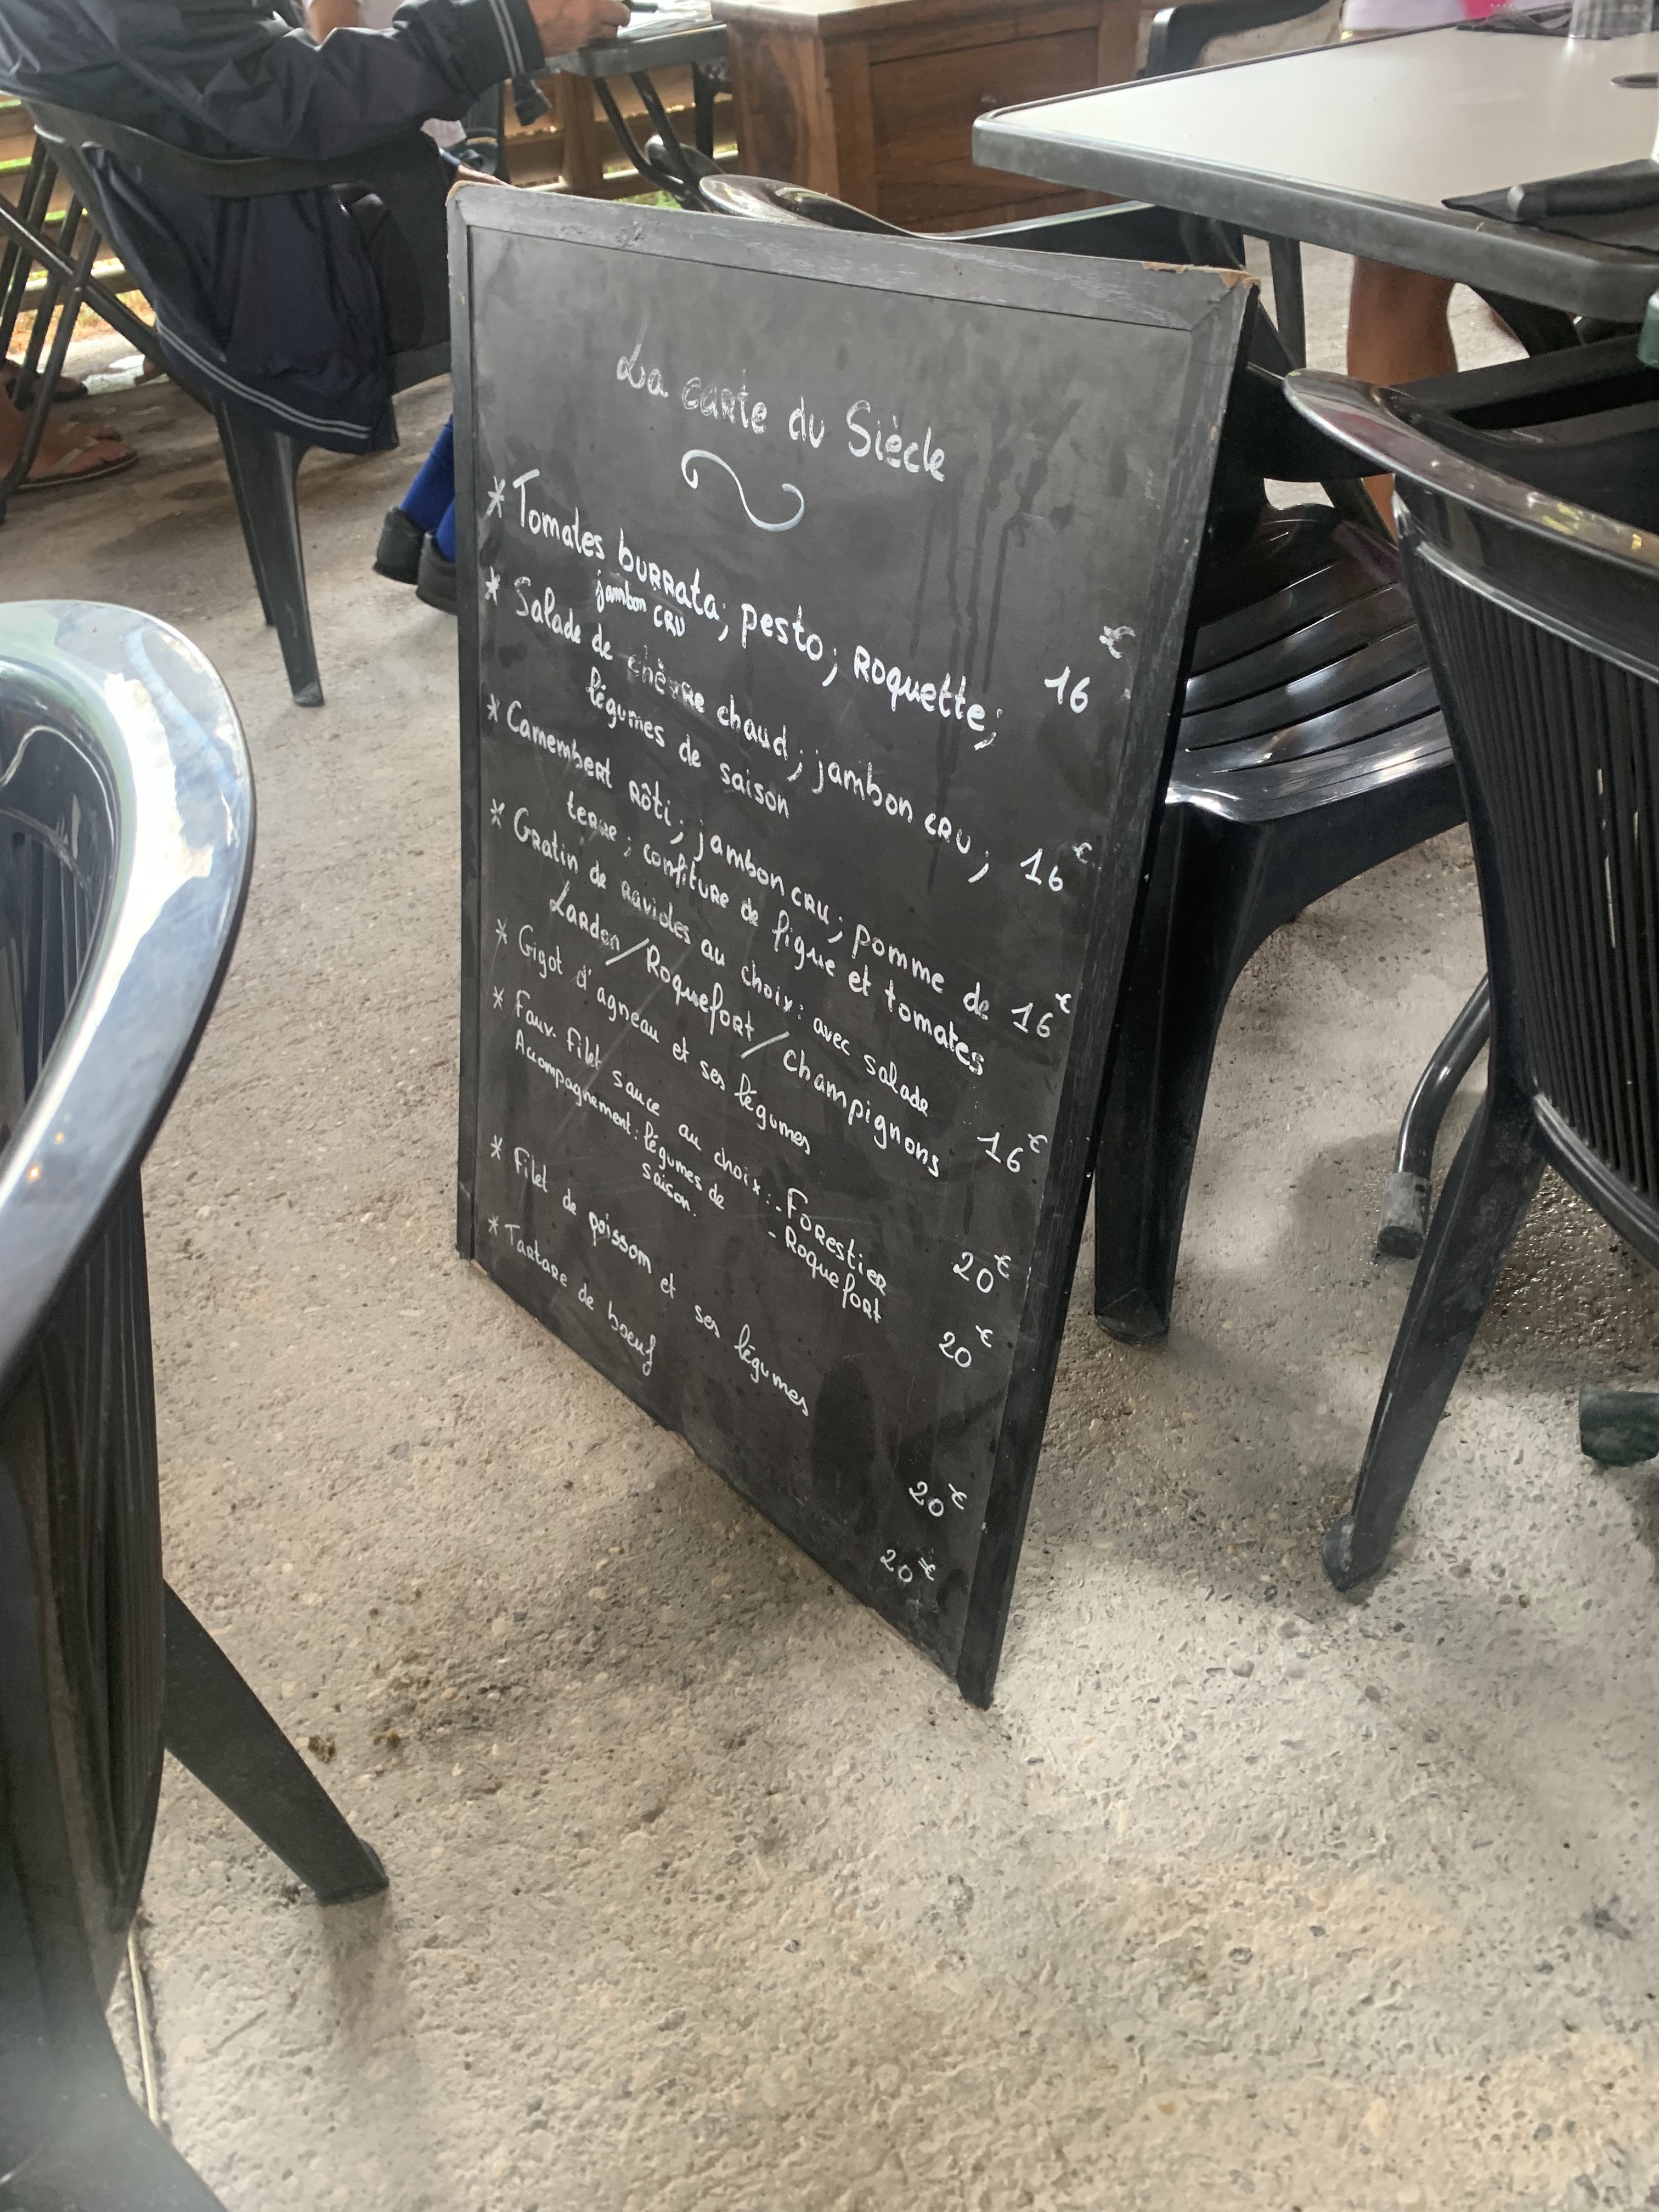 La carte du Siècle
* Tomates burrata; pesto; roquette; 16€
jambon cru
* Salade de chèvre chaud; jambon cru; 16€
légumes de saison
* Camembert rôti; jambon cru; pomme de 16€
terre; confiture de figue et tomates
* Gratin de ravioles au choix: avec salade
Lardon / Roquefort / Champignons 16€
* Gigot d'agneau et ses légumes 20€
* Faux-Filet sauce au choix: - Forestier 20€
Accompagnement: légumes de - Roquefort
saison.
* Filet de poissom et ses légumes 20€
* Tartare de boeuf 20€